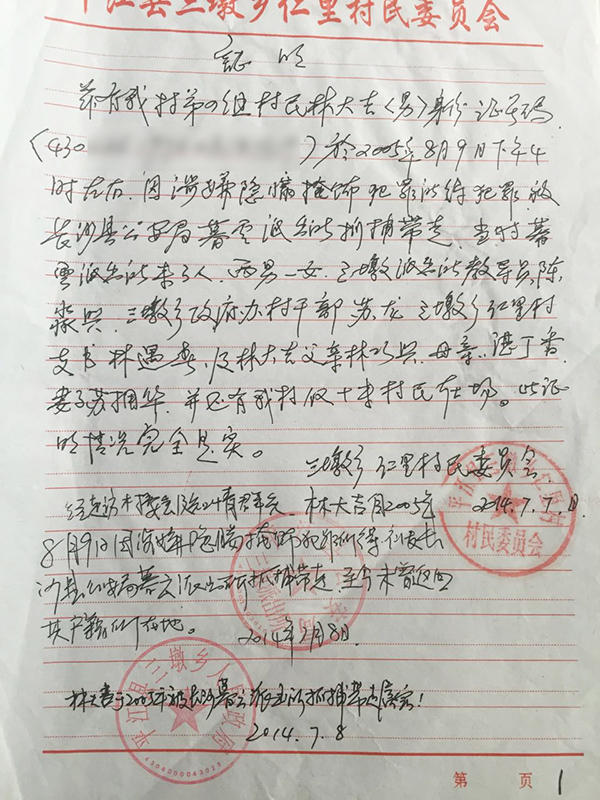 平江县三墩乡仁里村民委员会
証明
兹有我村第四组村民林大吉(男)身份证号码
(430 )於2005年8月9日下午4
时左右,因涉嫌隐瞒掩饰犯罪所得犯罪被
长沙县公安局暮云派出所抓捕带走,当时暮
云派出所来了3人,两男一女,三墩派出所教导员陈
兴,三墩乡政府办村干部苏龙,三墩乡仁里村
支书林遇 及林大吉父亲林 兴,母亲湛丁香,
妻子苏 华,并还有我村 十来村民在场。此证
明情况完全是实。
三墩乡仁里村民委员会
2014.7.7日
村民委员会
林大吉自2005年
8月9日因涉嫌隐瞒掩饰犯罪所得 被长
沙县公安局暮云派出所抓捕带走,至今未曾返回
其户籍所在地。 2014年7月8日
平江县三墩乡人民政府
林大吉于2005年被长沙暮云派出所抓捕带走属实!
2014.7.8
4304000043023
第 页 1